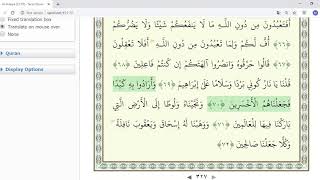 Fixed translation box
Translate on mouse over
None
Quran
أَفَتَعْبُدُونَ مِن دُونِ اللَّـهِ مَا لَا يَنفَعُكُمْ شَيْئًا وَلَا يَضُرُّكُمْ
﴿٦٦﴾ أُفٍّ لَّكُمْ وَلِمَا تَعْبُدُونَ مِن دُونِ اللَّـهِ أَفَلَا تَعْقِلُونَ
﴿٦٧﴾ قَالُوا حَرِّقُوهُ وَانصُرُوا آلِهَتَكُمْ إِن كُنتُمْ فَاعِلِينَ ﴿٦٨﴾
قُلْنَا يَا نَارُ كُونِي بَرْدًا وَسَلَامًا عَلَىٰ إِبْرَاهِيمَ ﴿٦٩﴾ وَأَرَادُوا بِهِ كَيْدًا
فَجَعَلْنَاهُمُ الْأَخْسَرِينَ ﴿٧٠﴾ وَنَجَّيْنَاهُ وَلُوطًا إِلَى الْأَرْضِ الَّتِي
بَارَكْنَا فِيهَا لِلْعَالَمِينَ ﴿٧١﴾ وَوَهَبْنَا لَهُ إِسْحَاقَ وَيَعْقُوبَ نَافِلَةً
وَكُلًّا جَعَلْنَا صَالِحِينَ ﴿٧٢﴾
٣٢٧